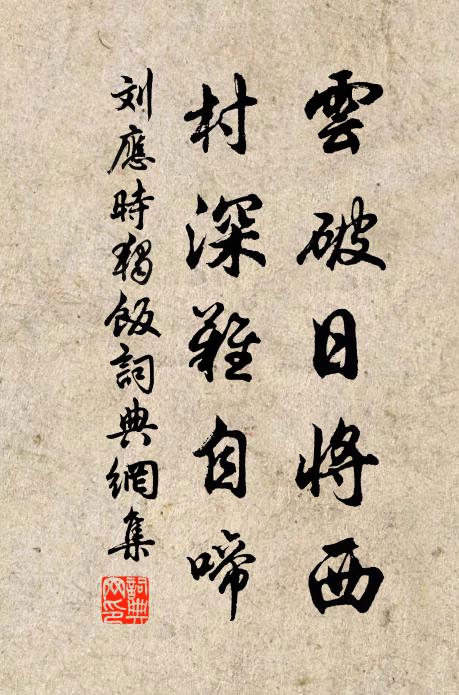 雲破日將西
村深雞自啼
刘應時獨飯詞典網集
詞典
网印